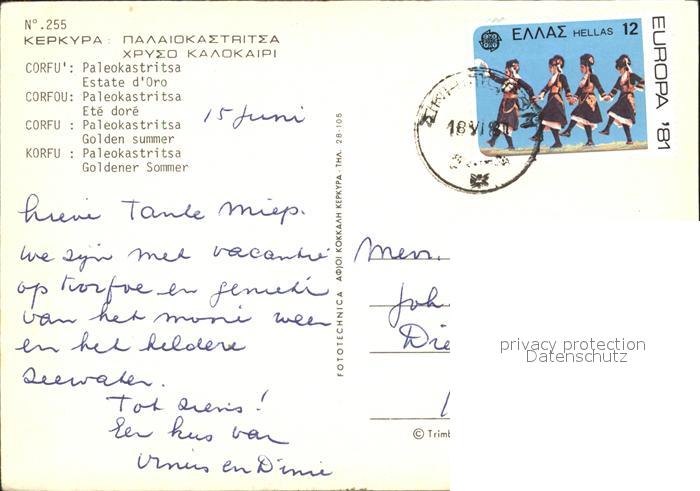 Nº.255
ΚΕΡΚΥΡΑ: ΠΑΛΑΙΟΚΑΣΤΡΙΤΣΑ
ΧΡΥΣΟ ΚΑΛΟΚΑΙΡΙ
CORFU': Paleokastritsa
Estate d'Oro
CORFOU: Paleokastritsa
Eté doré
CORFU : Paleokastritsa
Golden summer
KORFU : Paleokastritsa
Goldener Sommer
15 Juni
lieve Tante Miep.
We zijn met vacantie
op Korfoe en genieten
van het mooie weer
en het heldere
zeewater.
Tot ziens!
Een kus van
en Dinie
FOTOTECHNICA ΑΦΙΟΙ ΚΟΚΚΑΛΗ ΚΕΡΚΥΡΑ-ΤΗΛ. 28-105
ΕΛΛΑΣ HELLAS 12
EUROPA '81
18 VI 81
Mevr.
Joh
Die
© Trimb
privacy protection
Datenschutz